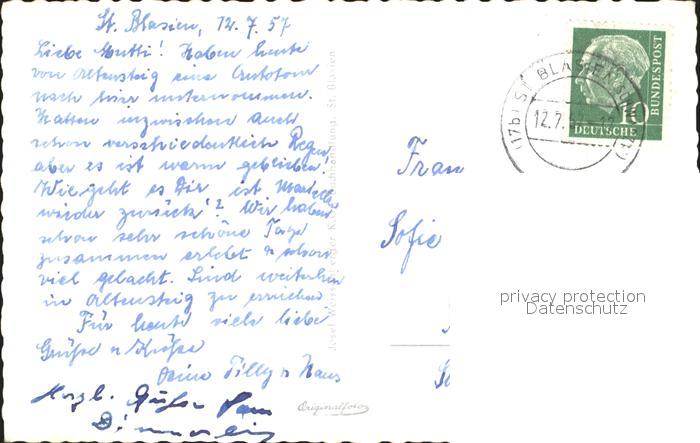 St. Blasien, 12.7.57
Liebe Mutti! Haben heute
von Altensteig eine Autotour
nach hier unternommen.
Hatten inzwischen auch
schon verschiedentlich Regen
aber es ist warm geblieben.
Wie geht es Dir, ist
wieder zurück? Wir haben
schon sehr schöne Tage
zusammen erlebt u schon
viel gelacht. Sind weiterhin
in Altensteig zu erreichen
Für heute viele liebe
Grüße u Küsse
Deine Tilly u Hans
Herzl. Grüße
Originalfoto
Josef
St. Blasien
Frau
Sofie
(17b) ST. BLASIEN
12.7.57
10
DEUTSCHE
BUNDESPOST
privacy protection
Datenschutz